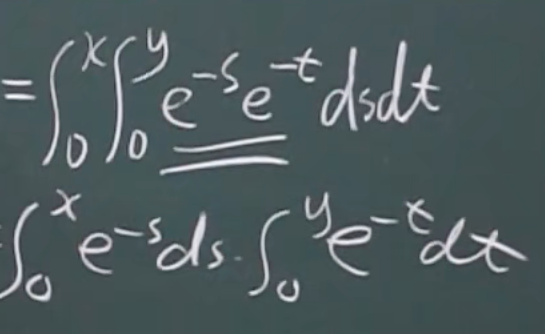 =∫₀ˣ∫₀ʸ e⁻ˢe⁻ᵗdsdt
∫₀ˣ e⁻ˢds·∫₀ʸ e⁻ᵗdt